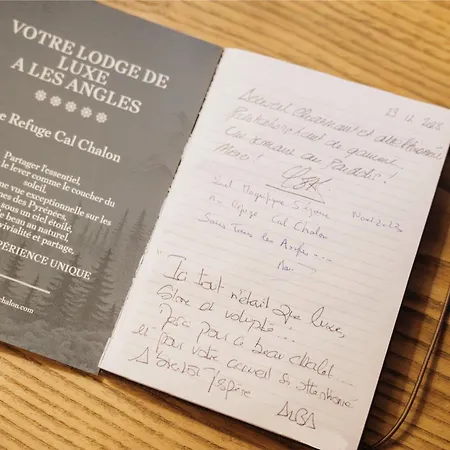 VOTRE LODGE DE
LUXE
A LES ANGLES
e Refuge Cal Chalon
Partager l'essentiel,
le lever comme le coucher du
soleil,
ne vue exceptionnelle sur les
nes des Pyrénées,
sous un ciel étoilé,
e beau au naturel,
vivialité et partage,
PÉRIENCE UNIQUE
chalon.com
Accueil charmant et
Prestations haut de gamme
Une semaine au Paradis !
Merci !
Magnifique Séjour Noël 2023
au refuge Cal Chalon
Sous Tous les Angles ...
Merci
"Ici tout n'était que luxe,
calme et volupté ...
pour ce beau chalet ...
et pour votre accueil si attentionné
A bientôt j'espère
ALBA